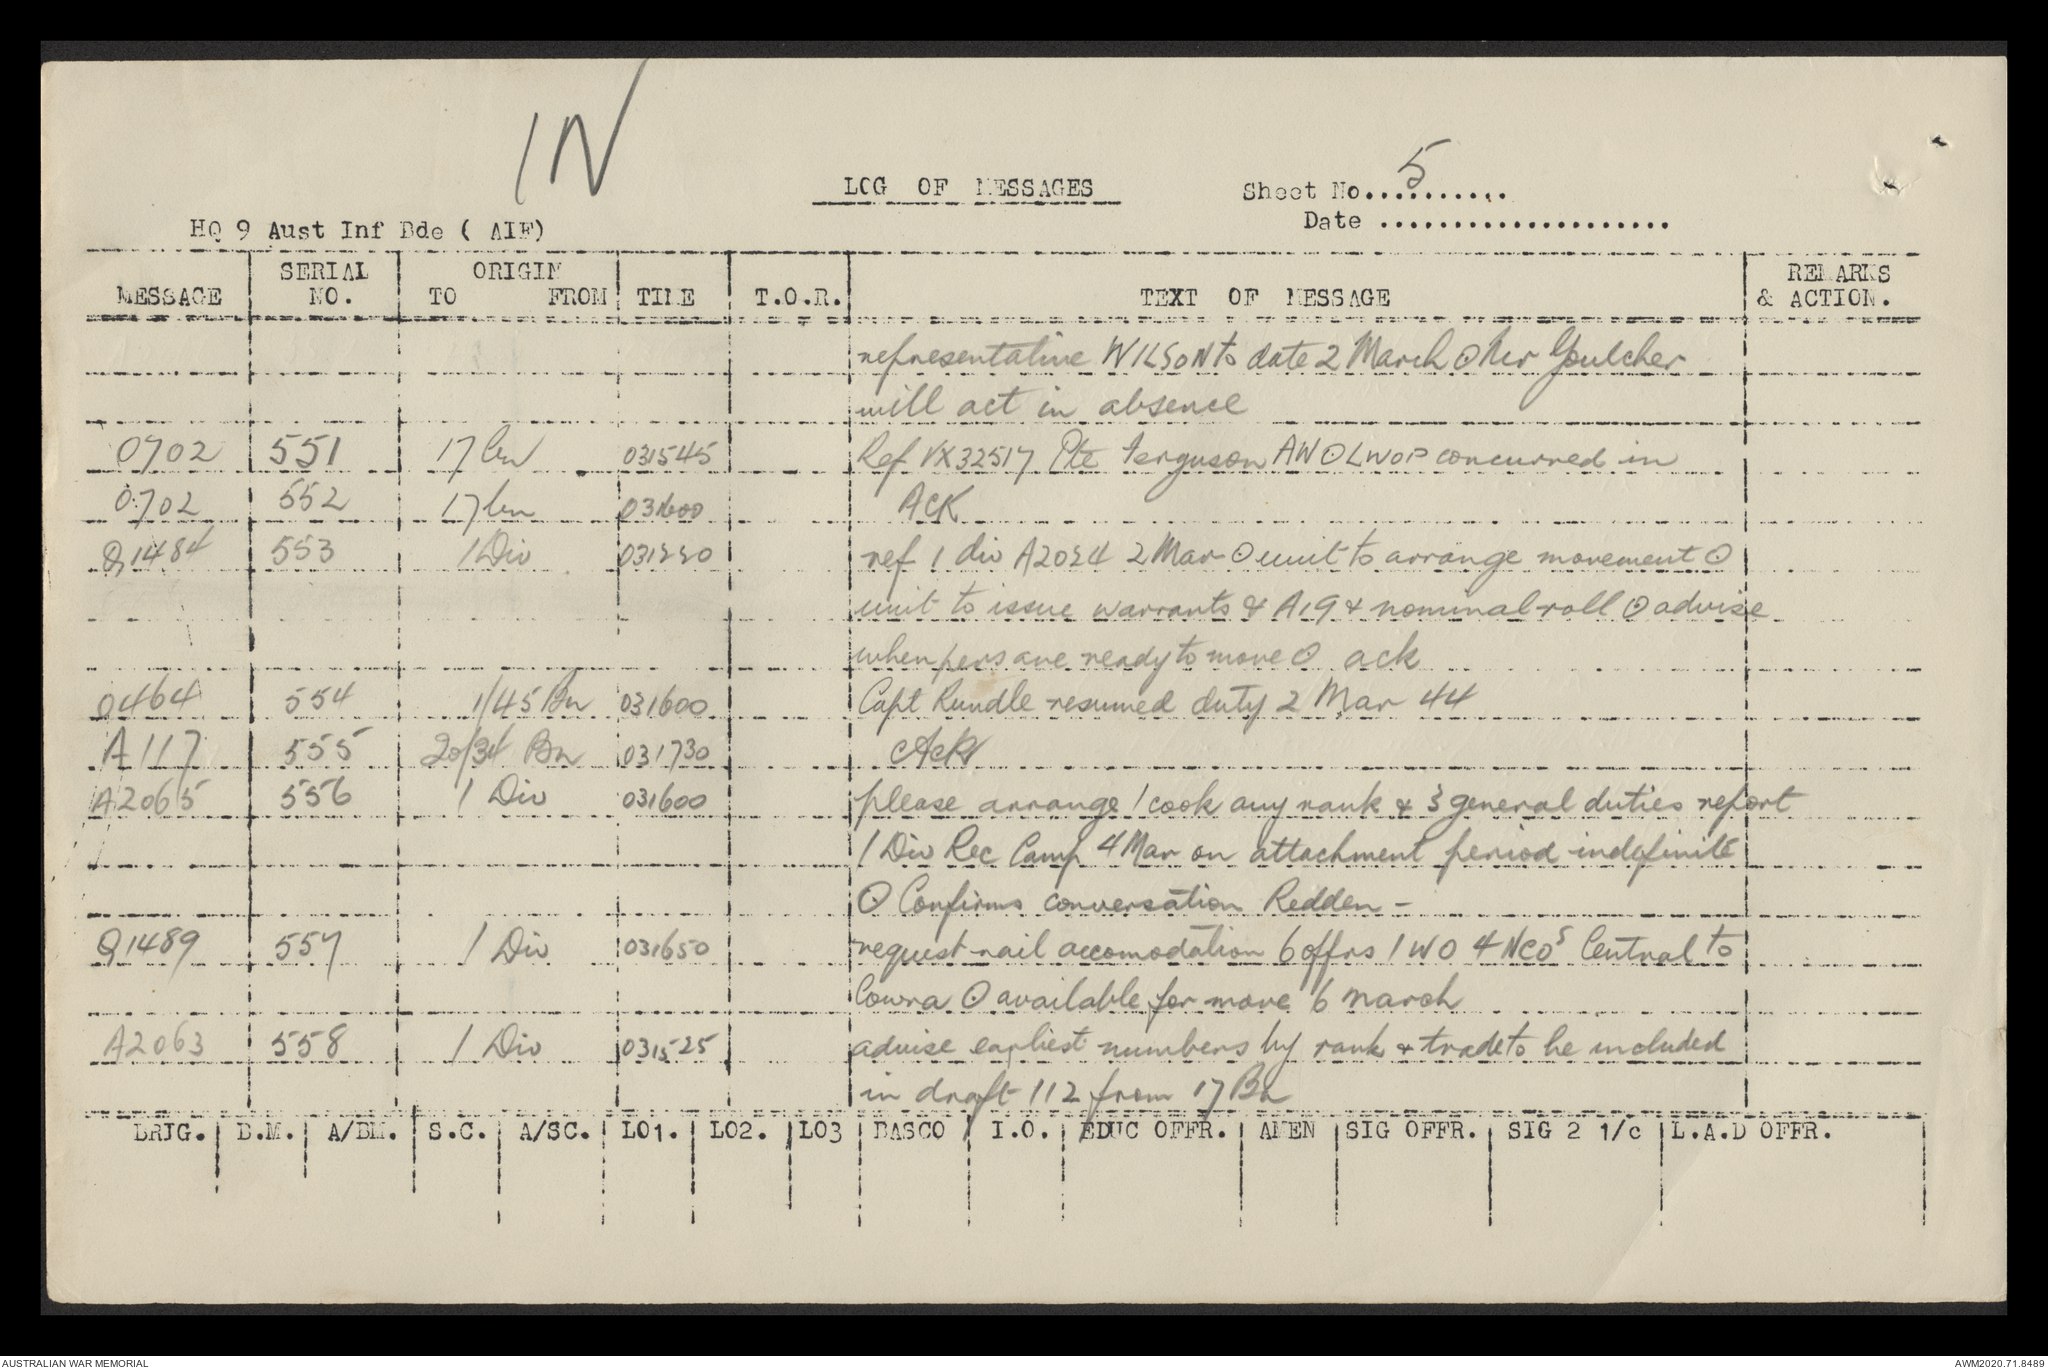 IN
LOG OF MESSAGES
Sheet No. 5
Date
HQ 9 Aust Inf Bde ( AIF)
MESSAGE SERIAL NO. ORIGIN TO FROM TIME T.O.R. TEXT OF MESSAGE REMARKS & ACTION.
representative WILSON to date 2 March ⊙ Mr Goulcher
will act in absence
0702 551 17 bn 031545 Ref VX32517 Pte Ferguson AWOLWOP concurred in
0702 552 17 bn 031600 ACK
Q1484 553 1 Div 031220 ref 1 div A2024 2 Mar ⊙ unit to arrange movement ⊙
unit to issue warrants & A19 & nominal roll ⊙ advise
when pers are ready to move ⊙ ack
0464 554 1/45 Bn 031600 Capt Rundle resumed duty 2 Mar 44
A117 555 20/34 Bn 031730 Ack
A2065 556 1 Div 031600 please arrange 1 cook any rank & 3 general duties report
1 Div Rec Camp 4 Mar on attachment period indefinite
⊙ Confirms conversation Redden -
Q1489 557 1 Div 031650 request rail accomodation 6 offrs 1 WO 4 NCOs Central to
Cowra ⊙ available for move 6 march
A2063 558 1 Div 031525 advise earliest numbers by rank & trade to be included
in draft 112 from 17 Bn
BRIG. B.M. A/BM. S.C. A/SC. LO1. LO2. LO3 BASCO I.O. EDUC OFFR. AMEN SIG OFFR. SIG 2 1/c L.A.D OFFR.
AUSTRALIAN WAR MEMORIAL
AWM2020.71.8489